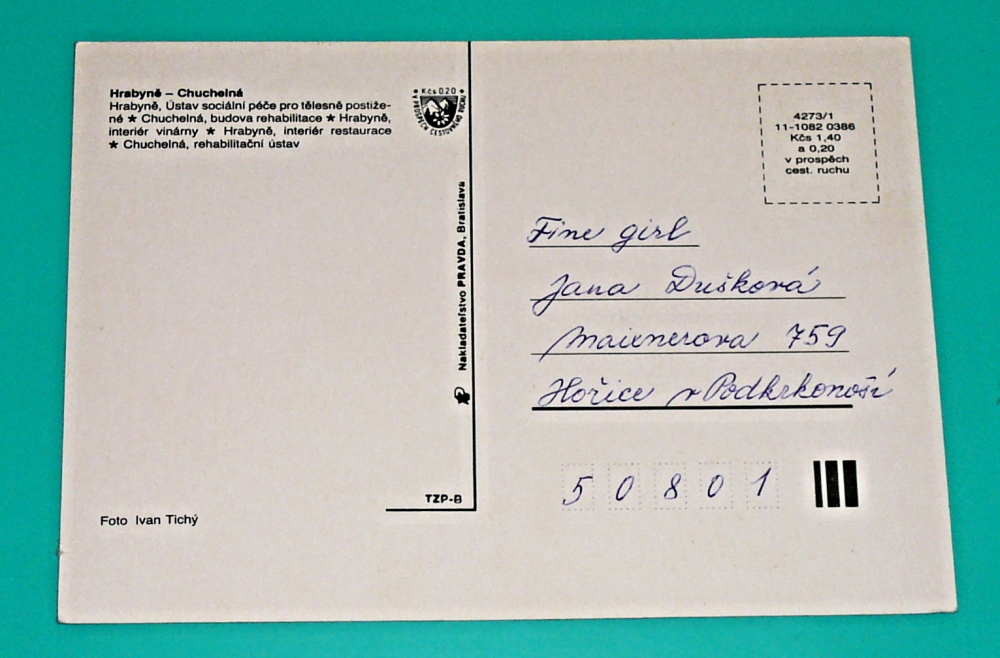 Hrabyně – Chuchelná
Hrabyně, Ústav sociální péče pro tělesně postiže-
né ★ Chuchelná, budova rehabilitace ★ Hrabyně,
interiér vinárny ★ Hrabyně, interiér restaurace
★ Chuchelná, rehabilitační ústav
Kčs 020
V PROSPĚCH CESTOVNÉHO RUCHU
Nakladateľstvo PRAVDA, Bratislava
TZP-B
Foto Ivan Tichý
4273/1
11-1082 0386
Kčs 1,40
a 0,20
v prospěch
cest. ruchu
Fine girl
Jana Dušková
Maixnerova 759
Hořice v Podkrkonoší
50801